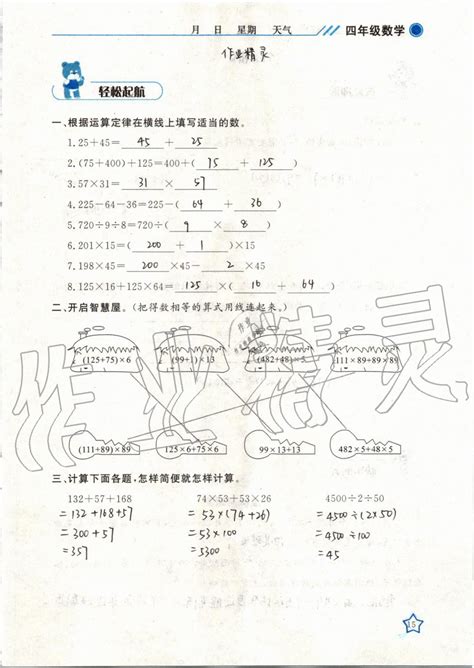 月 日 星期 天气 四年级数学
作业精灵
轻松起航
一、根据运算定律在横线上填写适当的数。
1.25+45= 45 + 25
2.(75+400)+125=400+( 75 + 125 )
3.57×31= 31 × 57
4.225-64-36=225-( 64 + 36 )
5.720÷9÷8=720÷( 9 × 8 )
6.201×15=( 200 + 1 )×15
7.198×45= 200 ×45- 2 ×45
8.125×16+125×64= 125 ×( 16 + 64 )
二、开启智慧屋。(把得数相等的算式用线连起来。)
(125+75)×6 (99+1)×13 (482+48)×5 111×89+89×89
(111+89)×89 125×6+75×6 99×13+13 482×5+48×5
三、计算下面各题,怎样简便就怎样计算。
132+57+168 74×53+53×26 4500÷2÷50
=132+168+57 =53×(74+26) =4500÷(2×50)
=300+57 =53×100 =4500÷100
=357 =5300 =45
15
作业精灵